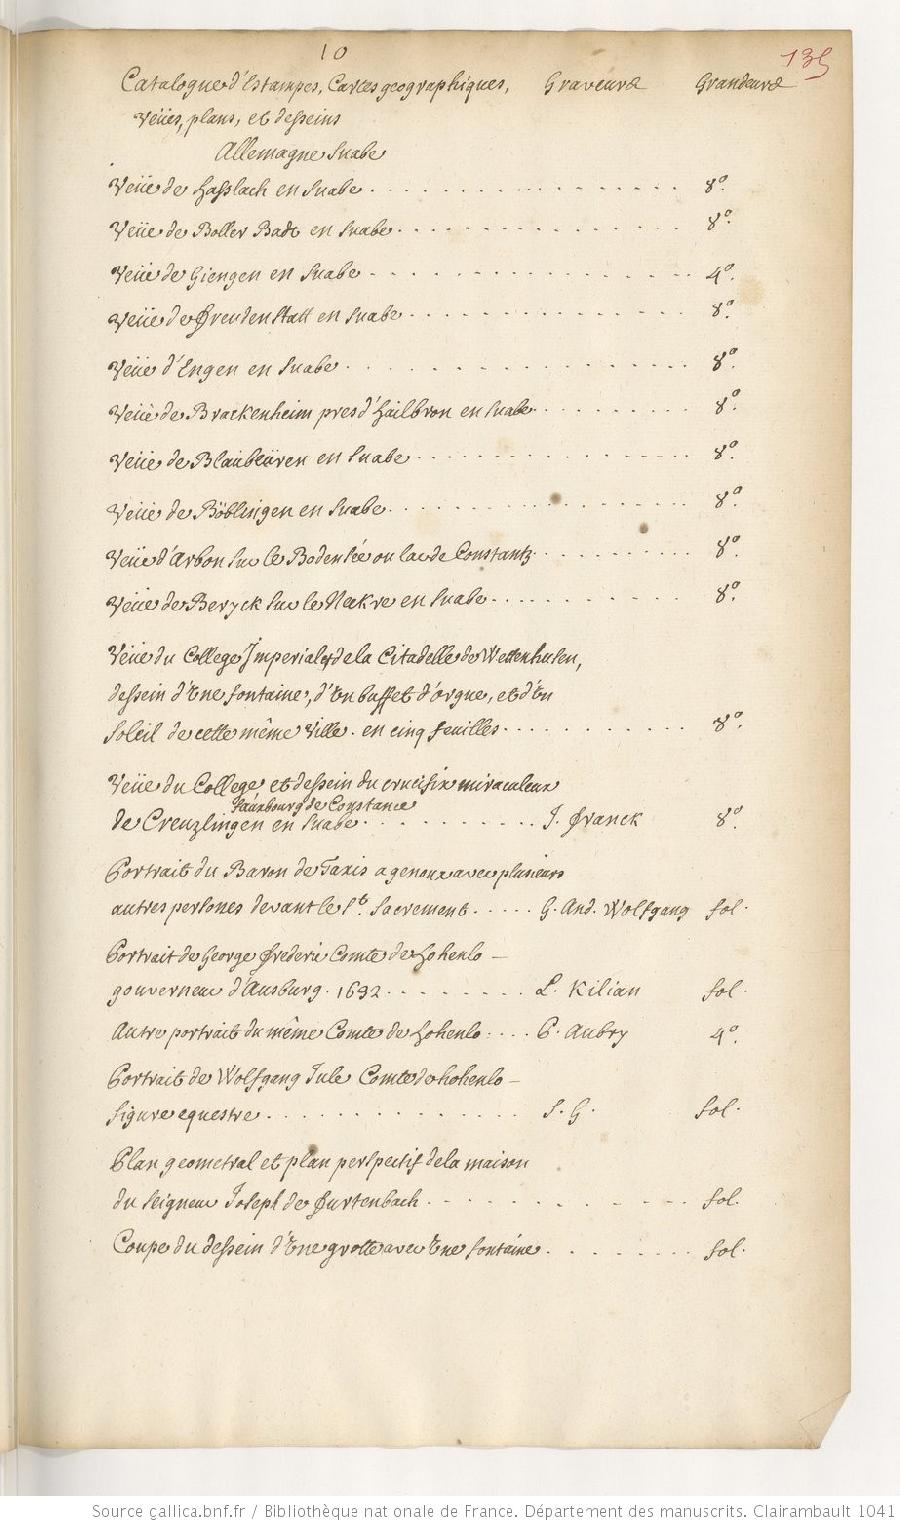 10
135
Catalogue d'Estampes, Cartes geographiques, Graveurs Grandeurs
Veües, plans, et desseins
Allemagne Suabe
Veüe de Hasslach en Suabe . . . . 8º.
Veüe de Boller Badt en Suabe . . . . 8º.
Veüe de Giengen en Suabe . . . . 4º.
Veüe de Freudenstatt en Suabe . . . . 8º.
Veüe d'Engen en Suabe . . . . 8º.
Veüe de Brackenheim pres d'Hailbron en Suabe . . . . 8º.
Veüe de Blaubeüren en Suabe . . . . 8º.
Veüe de Böblingen en Suabe . . . . 8º.
Veüe d'Arbon sur le Bodensée ou lac de Constantz . . . . 8º.
Veüe de Beryck sur le Nekre en Suabe . . . . 8º.
Veüe du College Imperial et de la Citadelle de Wettenhusen,
dessein d'Une fontaine, d'Un buffet d'orgue, et d'Un
Soleil de cette même Ville. en cinq feuilles . . . . 8º.
Veüe du College et dessein du crucifix miraculeux
Fauxbourg de Constance
de Creuzlingen en Suabe . . . . J. Franck 8º.
Portrait du Baron de Taxis a genoux avec plusieurs
autres persones devant le St. Sacrement . . . . G. And. Wolfgang fol.
Portrait de George Frederic Comte de Hohenlo –
gouverneur d'Ausburg. 1632 . . . . L. Kilian fol.
Autre portrait du même Comte de Hohenlo . . . . P. Aubry 4º.
Portrait de Wolfgang Jule Comte de hohenlo –
figure equestre . . . . S. G. fol.
Plan geometral et plan perspectif de la maison
du seigneur Joseph de Furtenbach . . . . fol.
Coupe du dessein d'Une grotte avec Une fontaine . . . . fol.
Source gallica.bnf.fr / Bibliothèque nationale de France. Département des manuscrits. Clairambault 1041